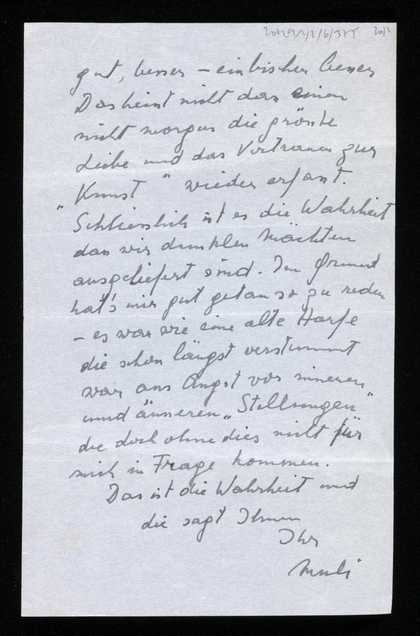 gut, besser – ein bischen besser
Das heist nicht dass einen
nicht morgen die grösste
Liebe und das Vertrauen zur
„Kunst" wieder erfasst.
Schliesslich ist es die Wahrheit
dass wir dunklen Mächten
ausgeliefert sind. Im Grund
hat's mir gut getan so zu reden
– es war wie eine alte Harfe
die schon längst verstummt
war aus Angst vor inneren
und äusseren „Stellungen"
die doch ohne dies nicht für
mich in Frage kommen.
Das ist die Wahrheit und
die sagt Ihnen
Ihr